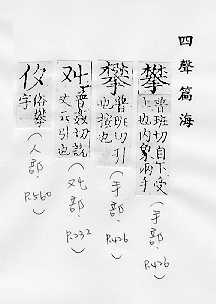 四聲篇海
攀
普班切自下受
上也内象兩手
(手部. P.426)
攀
普班切引
也
(手部. P.426)
普姦切說
文云引也
部. P.232)
俗攀
字
(人部. P.560)